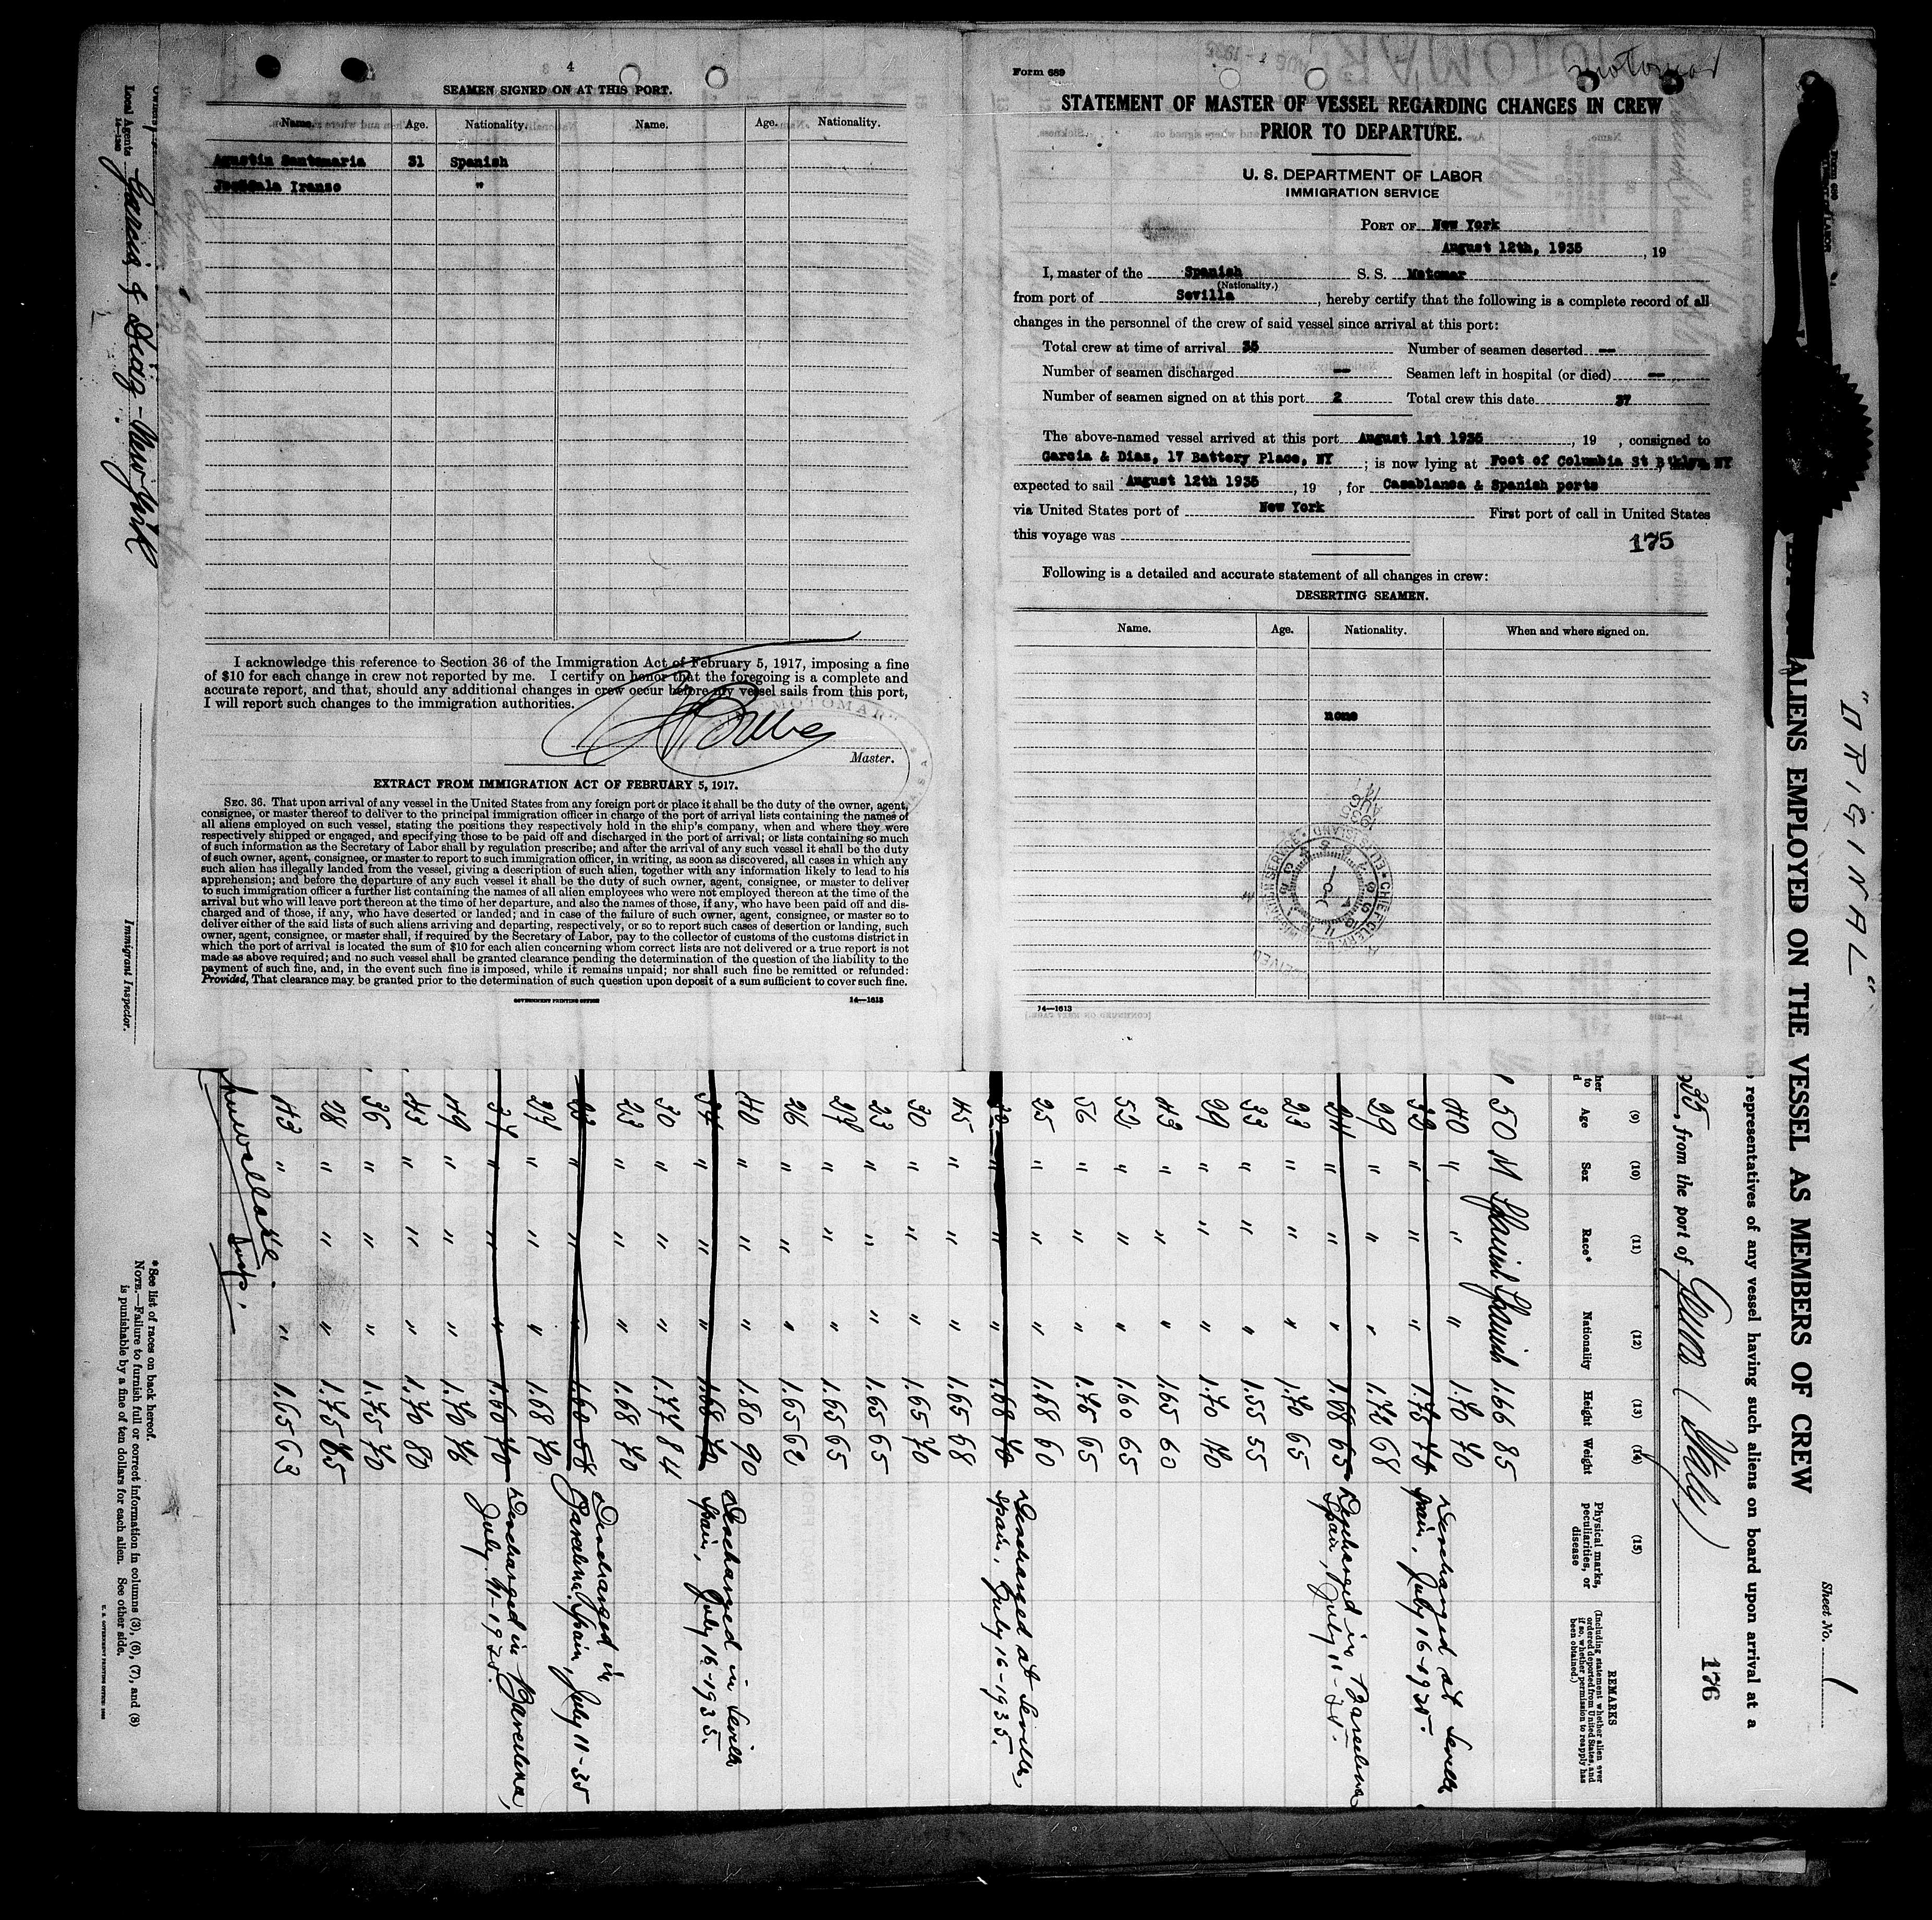 4
SEAMEN SIGNED ON AT THIS PORT.
Name. Age. Nationality. Name. Age. Nationality.
Agustin Santamaria 31 Spanish
Iranzo "
I acknowledge this reference to Section 36 of the Immigration Act of February 5, 1917, imposing a fine
of $10 for each change in crew not reported by me. I certify on honor that the foregoing is a complete and
accurate report, and that, should any additional changes in crew occur before my vessel sails from this port,
I will report such changes to the immigration authorities.
MOTOMAR
Master.
EXTRACT FROM IMMIGRATION ACT OF FEBRUARY 5, 1917.
SEC. 36. That upon arrival of any vessel in the United States from any foreign port or place it shall be the duty of the owner, agent,
consignee, or master thereof to deliver to the principal immigration officer in charge of the port of arrival lists containing the names of
all aliens employed on such vessel, stating the positions they respectively hold in the ship's company, when and where they were
respectively shipped or engaged, and specifying those to be paid off and discharged in the port of arrival; or lists containing so much
of such information as the Secretary of Labor shall by regulation prescribe; and after the arrival of any such vessel it shall be the duty
of such owner, agent, consignee, or master to report to such immigration officer, in writing, as soon as discovered, all cases in which any
such alien has illegally landed from the vessel, giving a description of such alien, together with any information likely to lead to his
apprehension; and before the departure of any such vessel it shall be the duty of such owner, agent, consignee, or master to deliver
to such immigration officer a further list containing the names of all alien employees who were not employed thereon at the time of the
arrival but who will leave port thereon at the time of her departure, and also the names of those, if any, who have been paid off and dis-
charged and of those, if any, who have deserted or landed; and in case of the failure of such owner, agent, consignee, or master so to
deliver either of the said lists of such aliens arriving and departing, respectively, or so to report such cases of desertion or landing, such
owner, agent, consignee, or master shall, if required by the Secretary of Labor, pay to the collector of customs of the customs district in
which the port of arrival is located the sum of $10 for each alien concerning whom correct lists are not delivered or a true report is not
made as above required; and no such vessel shall be granted clearance pending the determination of the question of the liability to the
payment of such fine, and, in the event such fine is imposed, while it remains unpaid; nor shall such fine be remitted or refunded:
Provided, That clearance may be granted prior to the determination of such question upon deposit of a sum sufficient to cover such fine.
GOVERNMENT PRINTING OFFICE 14—1613
Form 689
Motomar
STATEMENT OF MASTER OF VESSEL REGARDING CHANGES IN CREW
PRIOR TO DEPARTURE.
U. S. DEPARTMENT OF LABOR
IMMIGRATION SERVICE
PORT OF New York
August 12th, 1935 , 19
I, master of the Spanish S. S. Motomar
(Nationality.)
from port of Sevilla , hereby certify that the following is a complete record of all
changes in the personnel of the crew of said vessel since arrival at this port:
Total crew at time of arrival 35 Number of seamen deserted —
Number of seamen discharged — Seamen left in hospital (or died) —
Number of seamen signed on at this port 2 Total crew this date 37
The above-named vessel arrived at this port August 1st 1935 , 19 , consigned to
Garcia & Diaz, 17 Battery Place, NY ; is now lying at Foot of Columbia St Bklyn NY
expected to sail August 12th 1935 , 19 , for Casablanca & Spanish ports
via United States port of New York First port of call in United States
this voyage was
175
Following is a detailed and accurate statement of all changes in crew:
DESERTING SEAMEN.
Name. Age. Nationality. When and where signed on.
none
14—1613
"ORIGINAL"
Sheet No. 1
ALIENS EMPLOYED ON THE VESSEL AS MEMBERS OF CREW
representatives of any vessel having such aliens on board upon arrival at a
35, from the port of Genoa (Italy)
176
(9) (10) (11) (12) (13) (14) (15)
Age Sex Race* Nationality Height Weight Physical marks, peculiarities, or disease
REMARKS
(Including statement whether alien ever ordered deported from United States, and if so, whether permission to reapply has been obtained.)
50 M Spanish Spanish 1.66 85
40 " " " 1.70 70
32 " " " 1.75 74 Discharged at Sevilla Spain, July 16-1935.
29 " " " 1.72 68
24 " " " 1.68 65 Discharged in Barcelona Spain, July 11-35.
23 " " " 1.70 65
33 " " " 1.55 55
29 " " " 1.70 70
43 " " " 1.65 60
52 " " " 1.60 65
56 " " " 1.75 65
25 " " " 1.68 60
" " " 1.68 70 Discharged at Sevilla, Spain, July 16-1935.
45 " " " 1.65 68
30 " " " 1.65 70
23 " " " 1.65 65
27 " " " 1.65 65
26 " " " 1.65 62
40 " " " 1.80 90
34 " " " 1.68 70 Discharged in Sevilla Spain, July 16-1935.
30 " " " 1.77 84
23 " " " 1.68 70
23 " " " 1.60 58 Discharged in Barcelona Spain, July 11-35
27 " " " 1.68 70
37 " " " 1.60 70 Discharged in Barcelona, July 11-1935.
49 " " " 1.70 76
43 " " " 1.70 80
36 " " " 1.75 70
28 " " " 1.75 85
43 " " " 1.65 63
Insp.
* See list of races on back hereof.
NOTE.—Failure to furnish full or correct information in columns (3), (6), (7), and (8)
is punishable by a fine of ten dollars for each alien. See other side.
Immigrant Inspector.
Owners
Local Agents Garcia & Diaz - New York
14—1240